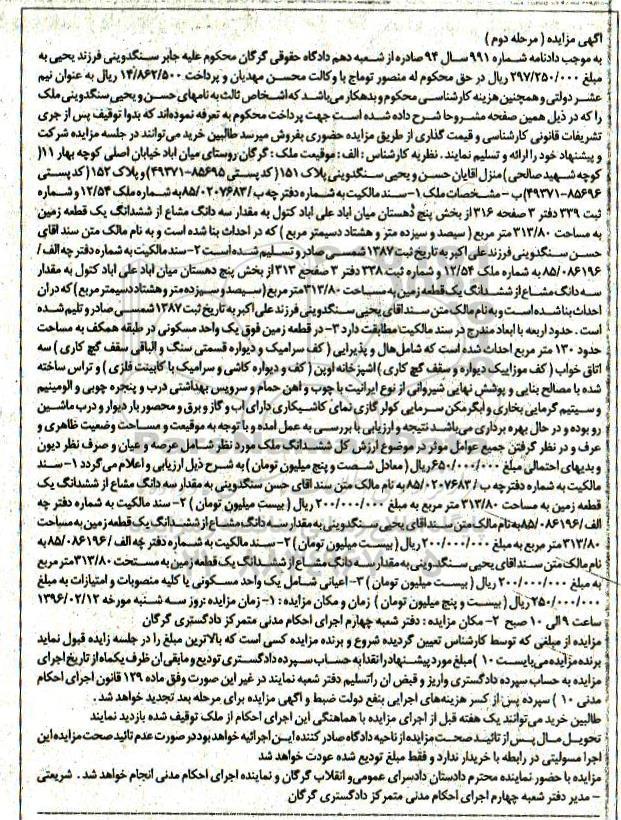 آگهی مزایده ( مرحله دوم )
به موجب دادنامه شماره ۹۹۱ سال ۹۴ صادره از شعبه دهم دادگاه حقوقی گرگان محکوم علیه جابر سنگدوینی فرزند یحیی به
مبلغ ۲۹۷/۲۵۰/۰۰۰ ریال در حق محکوم له منصور توماج با وکالت محسن مهدیان و پرداخت ۱۴/۸۶۲/۵۰۰ ریال به عنوان نیم
عشر دولتی و همچنین هزینه کارشناسی محکوم و بدهکار می‌باشد که اشخاص ثالث به نامهای حسن و یحیی سنگدوینی ملک
را که در ذیل همین صفحه مشروحا شرح داده شده است جهت پرداخت محکوم به تعرفه نموده‌اند که بدوا توقیف پس از جری
تشریفات قانونی کارشناسی و قیمت گذاری از طریق مزایده حضوری بفروش میرسد طالبین خرید می‌توانند در جلسه مزایده شرکت
و پیشنهاد خود را ارائه و تسلیم نمایند . نظریه کارشناس : الف : موقیعت ملک : گرگان روستای میان اباد خیابان اصلی کوچه بهار ۱۱(
کوچه شهید صالحی ) منزل اقایان حسن و یحیی سنگدوینی پلاک ۱۵۱ ( کد پستی ۸۵۶۹۵-۴۹۳۷۱) و پلاک ۱۵۲ ( کد پستی
۸۵۶۹۶-۴۹۳۷۱) ب - مشخصات ملک ۱-سند مالکیت به شماره دفتر چه ب / ۸۵/۰۲۰۷۶۸۳ به شماره ملک ۱۲/۵۴ و شماره
ثبت ۳۳۹ دفتر ۳ صفحه ۳۱۶ از بخش پنج دهستان میان اباد علی اباد کتول به مقدار سه دانگ مشاع از ششدانگ یک قطعه زمین
به مساحت ۳۱۳/۸۰ متر مربع ( سیصد و سیزده متر و هشتاد دسیمتر مربع ) که در احداث بنا شده است و به نام مالک متن سند اقای
حسن سنگدوینی فرزند علی اکبر به تاریخ ثبت ۱۳۸۷ شمسی صادر و تسلیم شده است ۲-سند مالکیت به شماره دفتر چه الف /
۸۵/۰۸۶۱۹۶ به شماره ملک ۱۲/۵۴ و شماره ثبت ۳۳۸ دفتر ۳ صفحع ۳۱۳ از بخش پنج دهستان میان اباد علی اباد کتول به مقدار
سه دانگ مشاع از ششدانگ یک قطعه زمین به مساحت ۳۱۳/۸۰ متر مربع ( سیصد و سیزده متر و هشتاد دسیمتر مربع ) که در ان
احداث بنا شده است و به نام مالک متن سند اقای یحیی سنگدوینی فرزند علی اکبر به تاریخ ثبت ۱۳۸۷ شمسی صادر و تلیم شده
است . حدود اربعه با ابعاد مندرج در سند مالکیت مطابقت دارد ۳- در قطعه زمین فوق یک واحد مسکونی در طبقه همکف به مساحت
حدود ۱۳۰ متر مربع احداث شده است که شامل هال و پذیرایی ( کف سرامیک و دیواره قسمتی سنگ و الباقی سقف گچ کاری ) سه
اتاق خواب ( کف موزاییک دیواره و سقف گچ کاری ) اشپزخانه اوپن ( کف و دیواره کاشی و سرامیک با کابینت فلزی ) و تراس ساخته
شده با مصالح بنایی و پوشش نهایی شیروانی از نوع ایرانیت با چوب و اهن حمام و سرویس بهداشتی درب و پنجره چوبی و الومینیم
و سیتیم گرمایی بخاری و ابگرمکن سرمایی کولر گازی نمای کاشیکاری دارای اب و گاز و برق و محصور بار دیوار و درب ماشین
رو بوده و در حال بهره برداری می‌باشد نتیجه و ارزیابی با بررسی به عمل امده و با توجه به موقعیت و مساحت وضعیت ظاهری و
عرف و در نظر گرفتن جمیع عوامل موثر در موضوع ارزش کل ششدانگ ملک مورد نظر شامل عرصه و عیان و صرف نظر دیون
و بدیهای احتمالی مبلغ ۶۵۰/۰۰۰/۰۰۰ ریال ( معادل شصت و پنج میلیون تومان ) به شرح ذیل ارزیابی و اعلام می‌گردد ۱- سند
مالکیت به شماره دفتر چه ب / ۸۵/۰۲۰۷۶۸۳ به نام مالک متن سند اقای حسن سنگدوینی به مقدار سه دانگ مشاع از ششدانگ یک
قطعه زمین به مساحت ۳۱۳/۸۰ متر مربع به مبلغ ۲۰۰/۰۰۰/۰۰۰ ریال ( بیست میلیون تومان ) ۲- سند مالکیت به شماره دفتر چه
الف / ۸۵/۰۸۶۱۹۶ به نام مالک متن سند اقای یحیی سنگدوینی به مقدار سه دانگ مشاع از ششدانگ یک قطعه زمین به مساحت
۳۱۳/۸۰ متر مربع به مبلغ ۲۰۰/۰۰۰/۰۰۰ ریال ( بیست میلیون تومان ) ۲- سند مالکیت به شماره دفتر چه الف / ۸۵/۰۸۶۱۹۶ به
نام مالک متن سند اقای یحیی سنگدوینی به مقدار سه دانگ مشاع از ششدانگ یک قطعه زمین به مستحت ۳۱۳/۸۰ متر مربع
به مبلغ ۲۰۰/۰۰۰/۰۰۰ ریال ( بیست میلیون تومان ) ۳- اعیانی شامل یک واحد مسکونی با کلیه منصوبات و امتیازات به مبلغ
۲۵۰/۰۰۰/۰۰۰ ریال ( بیست و پنج میلیون تومان ) زمان و مکان مزایده : ۱- زمان مزایده :روز سه شنبه مورخه ۱۳۹۶/۰۲/۱۲
ساعت ۹ الی ۱۰ صبح ۲- مکان مزایده : دفتر شعبه چهارم اجرای احکام مدنی متمرکز دادگستری گرگان
مزایده از مبلغی که توسط کارشناس تعیین گردیده شروع و برنده مزایده کسی است که بالاترین مبلغ را در جلسه زایده قبول نماید
برنده مزایده می‌بایست ۱۰ ) مبلغ مورد پیشنهاد را نقدا به حساب سپرده دادگستری تودیع و مابقی ان ظرف یکماه از تاریخ اجرای
مزایده به حساب سپرده دادگستری واریز و قبض ان راتسلیم دفتر شعبه نمایند در غیر این صورت وفق ماده ۱۲۹ قانون اجرای احکام
مدنی ۱۰ ) سپرده پس از کسر هزینه‌های اجرایی بنفع دولت ضبط و اگهی مزایده برای مرحله بعد تجدید خواهد شد .
طالبین خرید می‌توانند یک هفته قبل از اجرای مزایده با هماهنگی این اجرای احکام از ملک توقیف شده بازدید نمایند
تحویل مال پس از تائید صحت مزایده از ناحیه دادگاه صادر کننده این اجرائیه خواهد بود در صورت عدم تائید صحت مزایده این
اجرا مسولیتی در رابطه با خریدار ندارد و فقط مبلغ تودیع شده عودت خواهد شد
مزایده با حضور نماینده محترم دادستان دادسرای عمومی و انقلاب گرگان و نماینده اجرای احکام مدنی انجام خواهد شد . شریعتی
- مدیر دفتر شعبه چهارم اجرای احکام مدنی متمرکز دادگستری گرگان